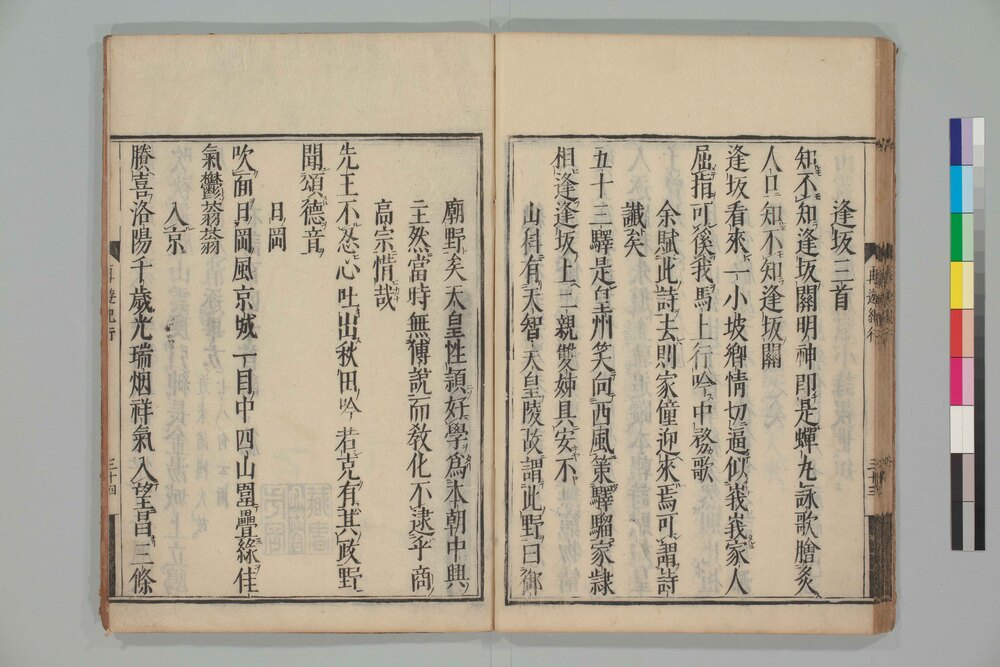 逢坂三首
知不知逢坂關明神即是蟬丸詠歌膾炙
人口知不知逢坂關
逢坂看來一小坡鄉情切逼似我我家人
屈指可俟我馬上行吟中務歌
余賦此詩去則家僮迎來焉可謂詩
讖矣
五十三驛是皇州笑向西風策驛騮家隸
相逢逢坂上二親雙姊具安不
山科有天智天皇陵故謂此野曰御
再遊紀行
三十三
廟野矣天皇性頴好學爲本朝中興
主然當時無傅說而敎化不逮乎商
高宗惜哉
先王不忍心吐出秋田吟若克有其政野
聞頌德音
日岡
吹面日岡風京城一目中四山罍疊綠佳
氣鬱蓊蓊
入京
賸喜洛陽千歲光瑞烟祥氣入望昌三條
再遊紀行
三十四